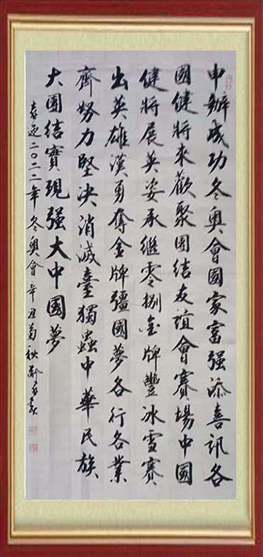 申辦成功冬奧會國家富强添喜訊各
國健將來歡聚團結友誼會賽場中國
健將展英姿承繼零捌金牌豐冰雪賽
出英雄漢勇奪金牌疆國夢各行各業
齊努力堅決消滅臺獨蟲中華民族
大團結實現强大中國夢
喜迎二〇二二年冬奧會辛丑菊秋